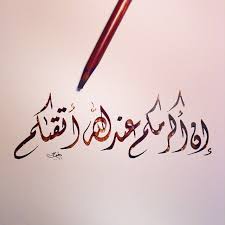 إن أكرمكم عند الله أتقىكم